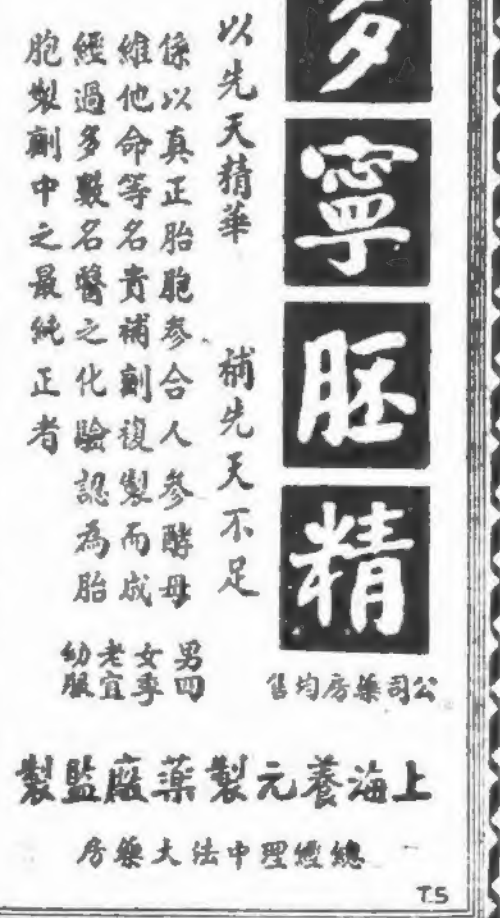 多寧胚精
公司藥房均售
以先天精華　補先天不足
係以真正胎胞參合人參酵母
維他命等名貴補劑複製而成
經過多數名醫之化驗認為胎
胞製劑中之最純正者
男女老幼
四季宜服
上海養元製藥廠監製
總經理中法大藥房
T.5